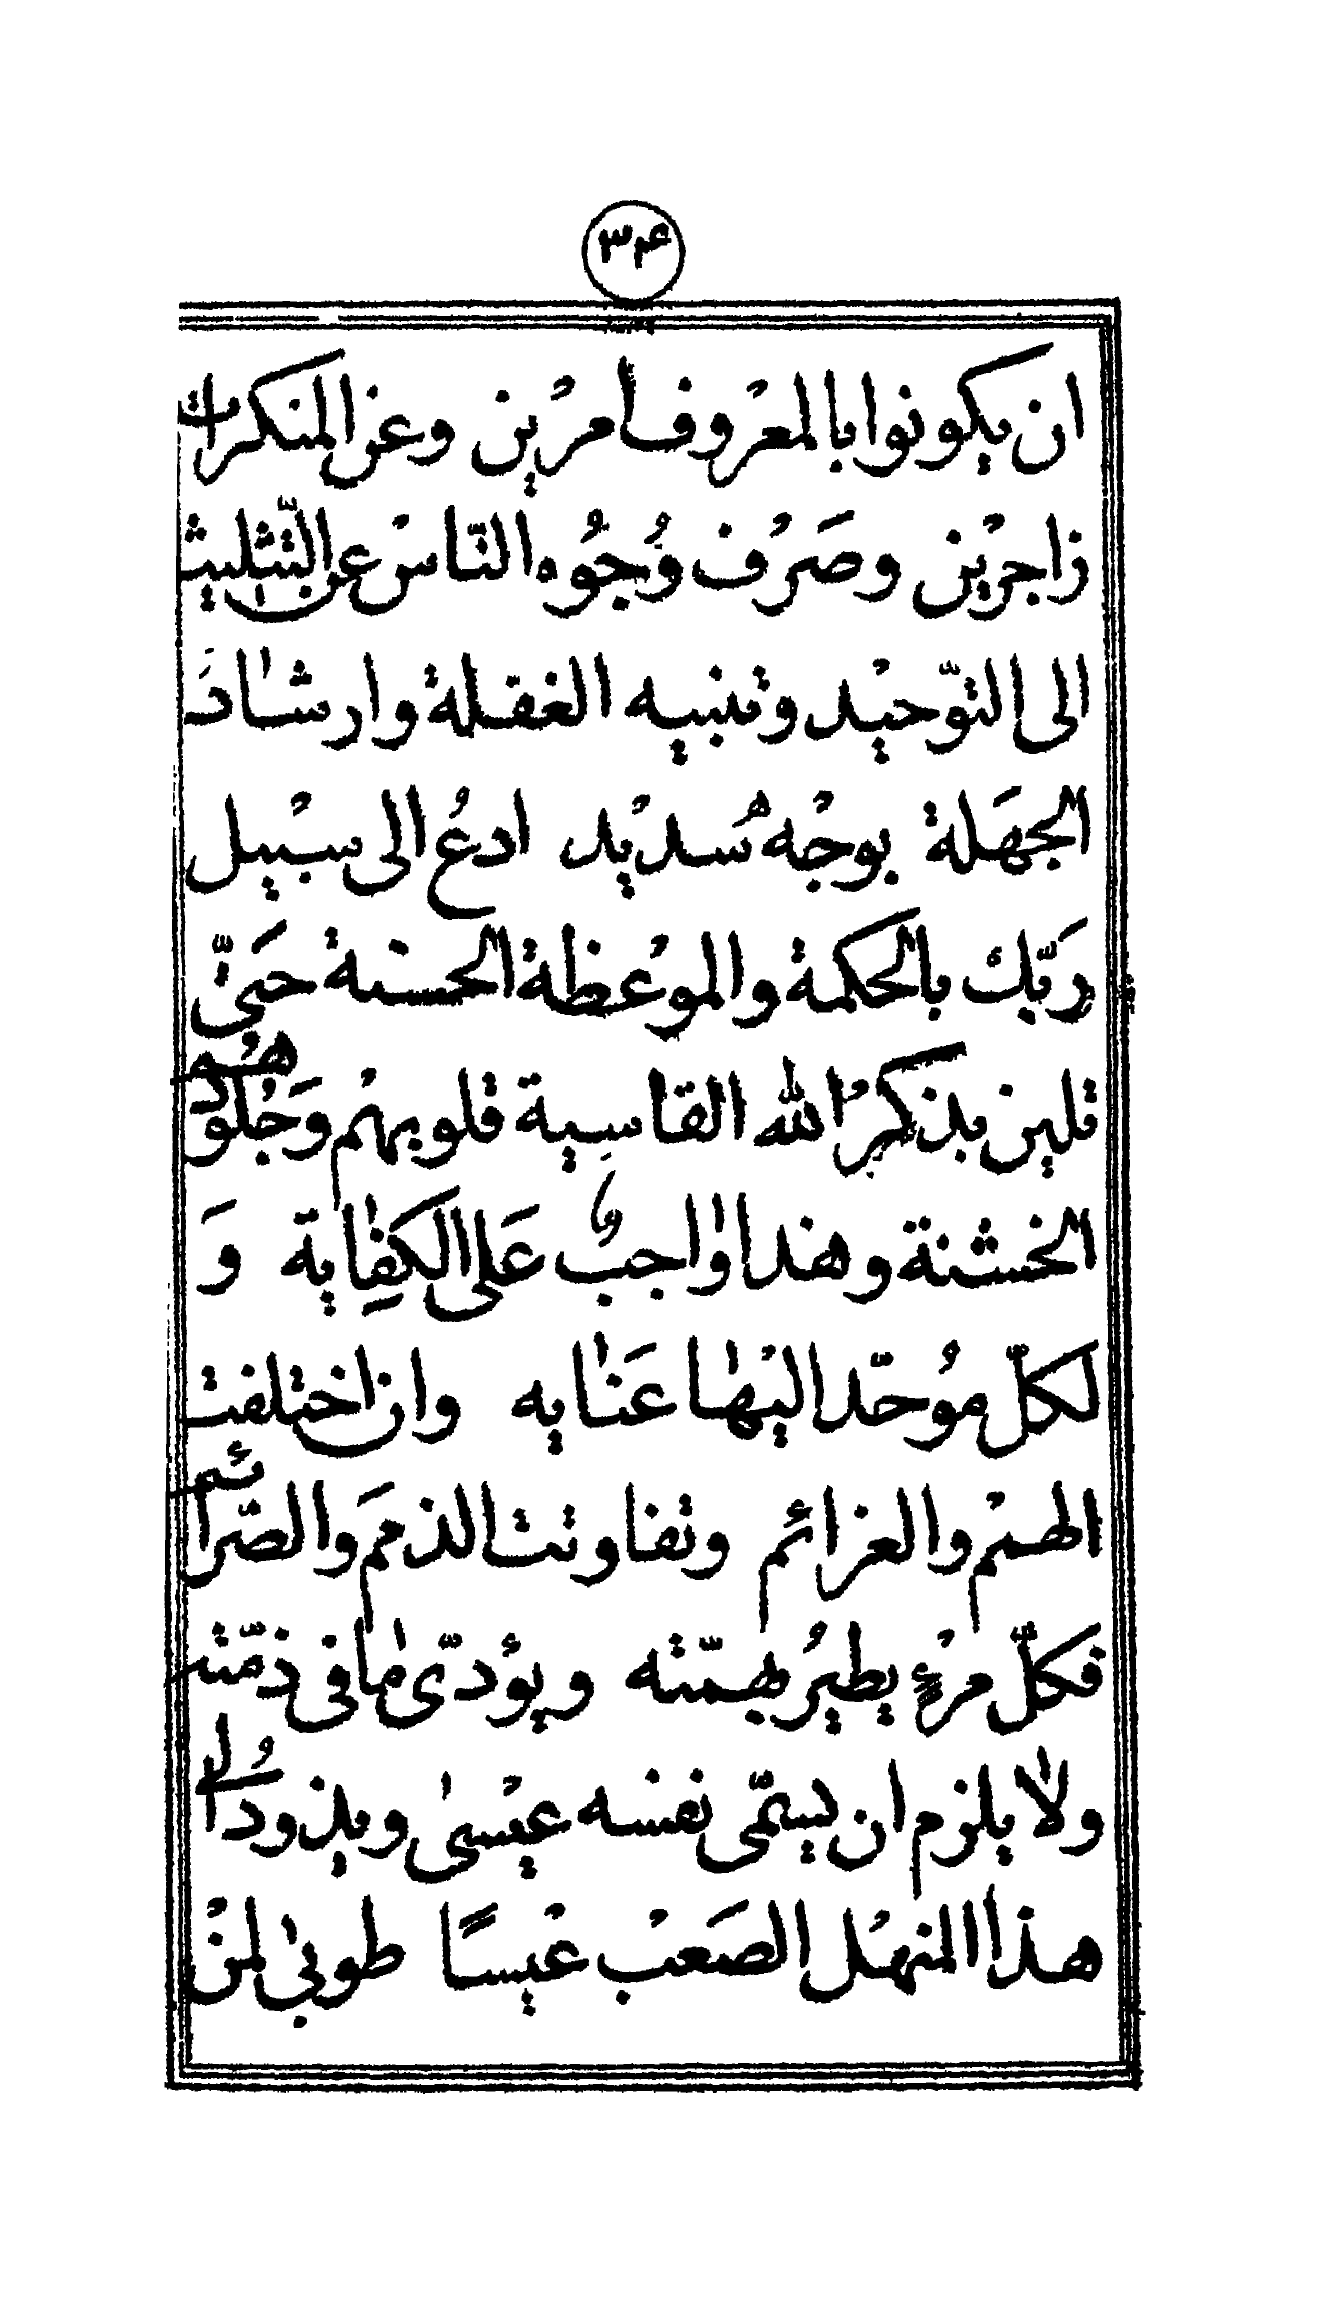 ۳۴
ان يكونوا بالمعْروف أمرْين وعن المنكرات
زاجرْين وصَرْف وُجُوه النّاسْ عن التّثليث
الى التّوحيْد وتنبيه الغفلة وارشٰادَ
الجهَلة بوجْه سُديْد ادعُ الى سبْيل
ربّك بالحكمة والموْعظة الحسنة حَتّى
تلين بذكرُ الله القاسِية قلوبهْم وَجُلُودهُم
الخشنة وهذا وٰاجبٌ عَلى الكفِٰاية وَ
لكلّ مُوحّد اليْهٰا عَنٰايه وان اختلفت
الهمْم والعزائم وتفاوتت الذمَم والصّرائم
فكلّ مرْءٍ يطيرُ بهمّته ويؤدّى مٰا فى ذمّته
ولاٰ يلزم ان يسمّى نفسه عيْسىٰ ويذودُ الُى
هذا المنهْل الصَعبْ عيْسًا طوبىٰ لمنْ